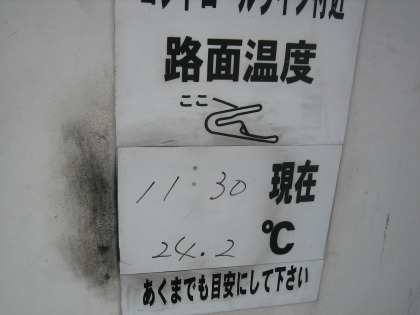 コントロールライン付近
路面温度
ここ
11:30 現在
24.2 ℃
あくまでも目安にして下さい